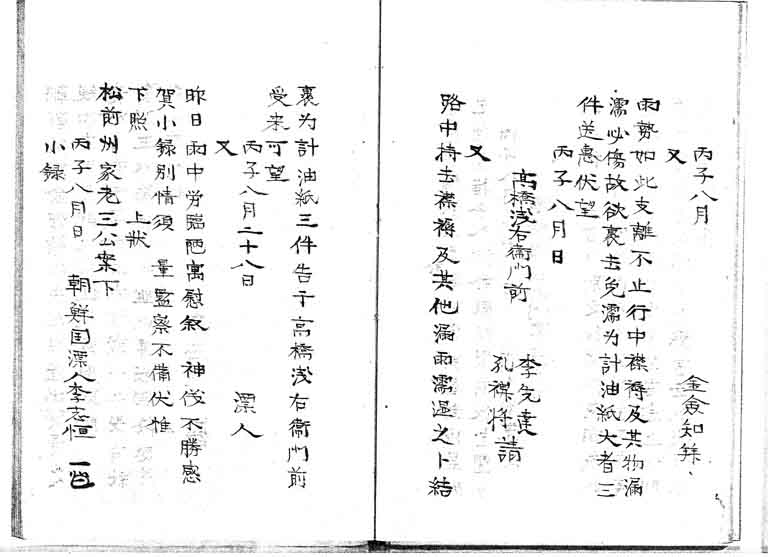 丙子八月
金僉知
又
雨勢如此支離不止行中襟褥及其物漏
濡必傷故欲裹去免濡为計油紙大者三
件送惠伏望
丙子八月日
李先達
孔裨將 請
高橋浅右衛門前
又
路中持去襟褥及其他漏雨濡湿之卜結
裹为計油紙三件告于高橋浅右衛門前
受来可望
丙子八月二十八日
又 漂人
昨日雨中労臨陋寓慰叙 神伐不勝感
賀小録別情須 量監察不備伏惟
下照 上狀
松前州家老三公案下
丙子八月日 朝鮮国漂人李志恒
小録